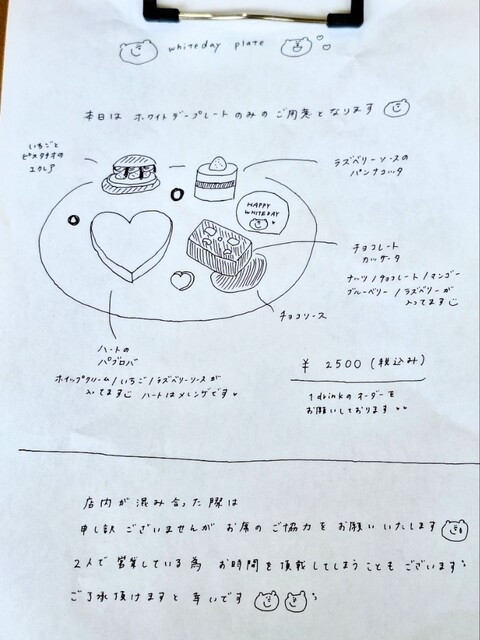 whiteday plate
本日は ホワイトデープレートのみのご用意となります
いちごと
ピスタチオの
エクレア
ラズベリーソースの
パンナコッタ
HAPPY
WHITEDAY
チョコレート
カッサータ
ナッツ/チョコレート/マンゴー
ブルーベリー/ラズベリーが
入ってます
チョコソース
ハートの
パブロバ
ホイップクリーム/いちご/ラズベリーソースが
入ってます ハートはメレンゲです
¥ 2500 (税込み)
1drinkのオーダーを
お願いしております
店内が混み合った際は
申し訳ございませんが お席のご協力をお願いいたします
2人で営業している為 お時間を頂戴してしまうこともございます
ご了承頂けますと幸いです